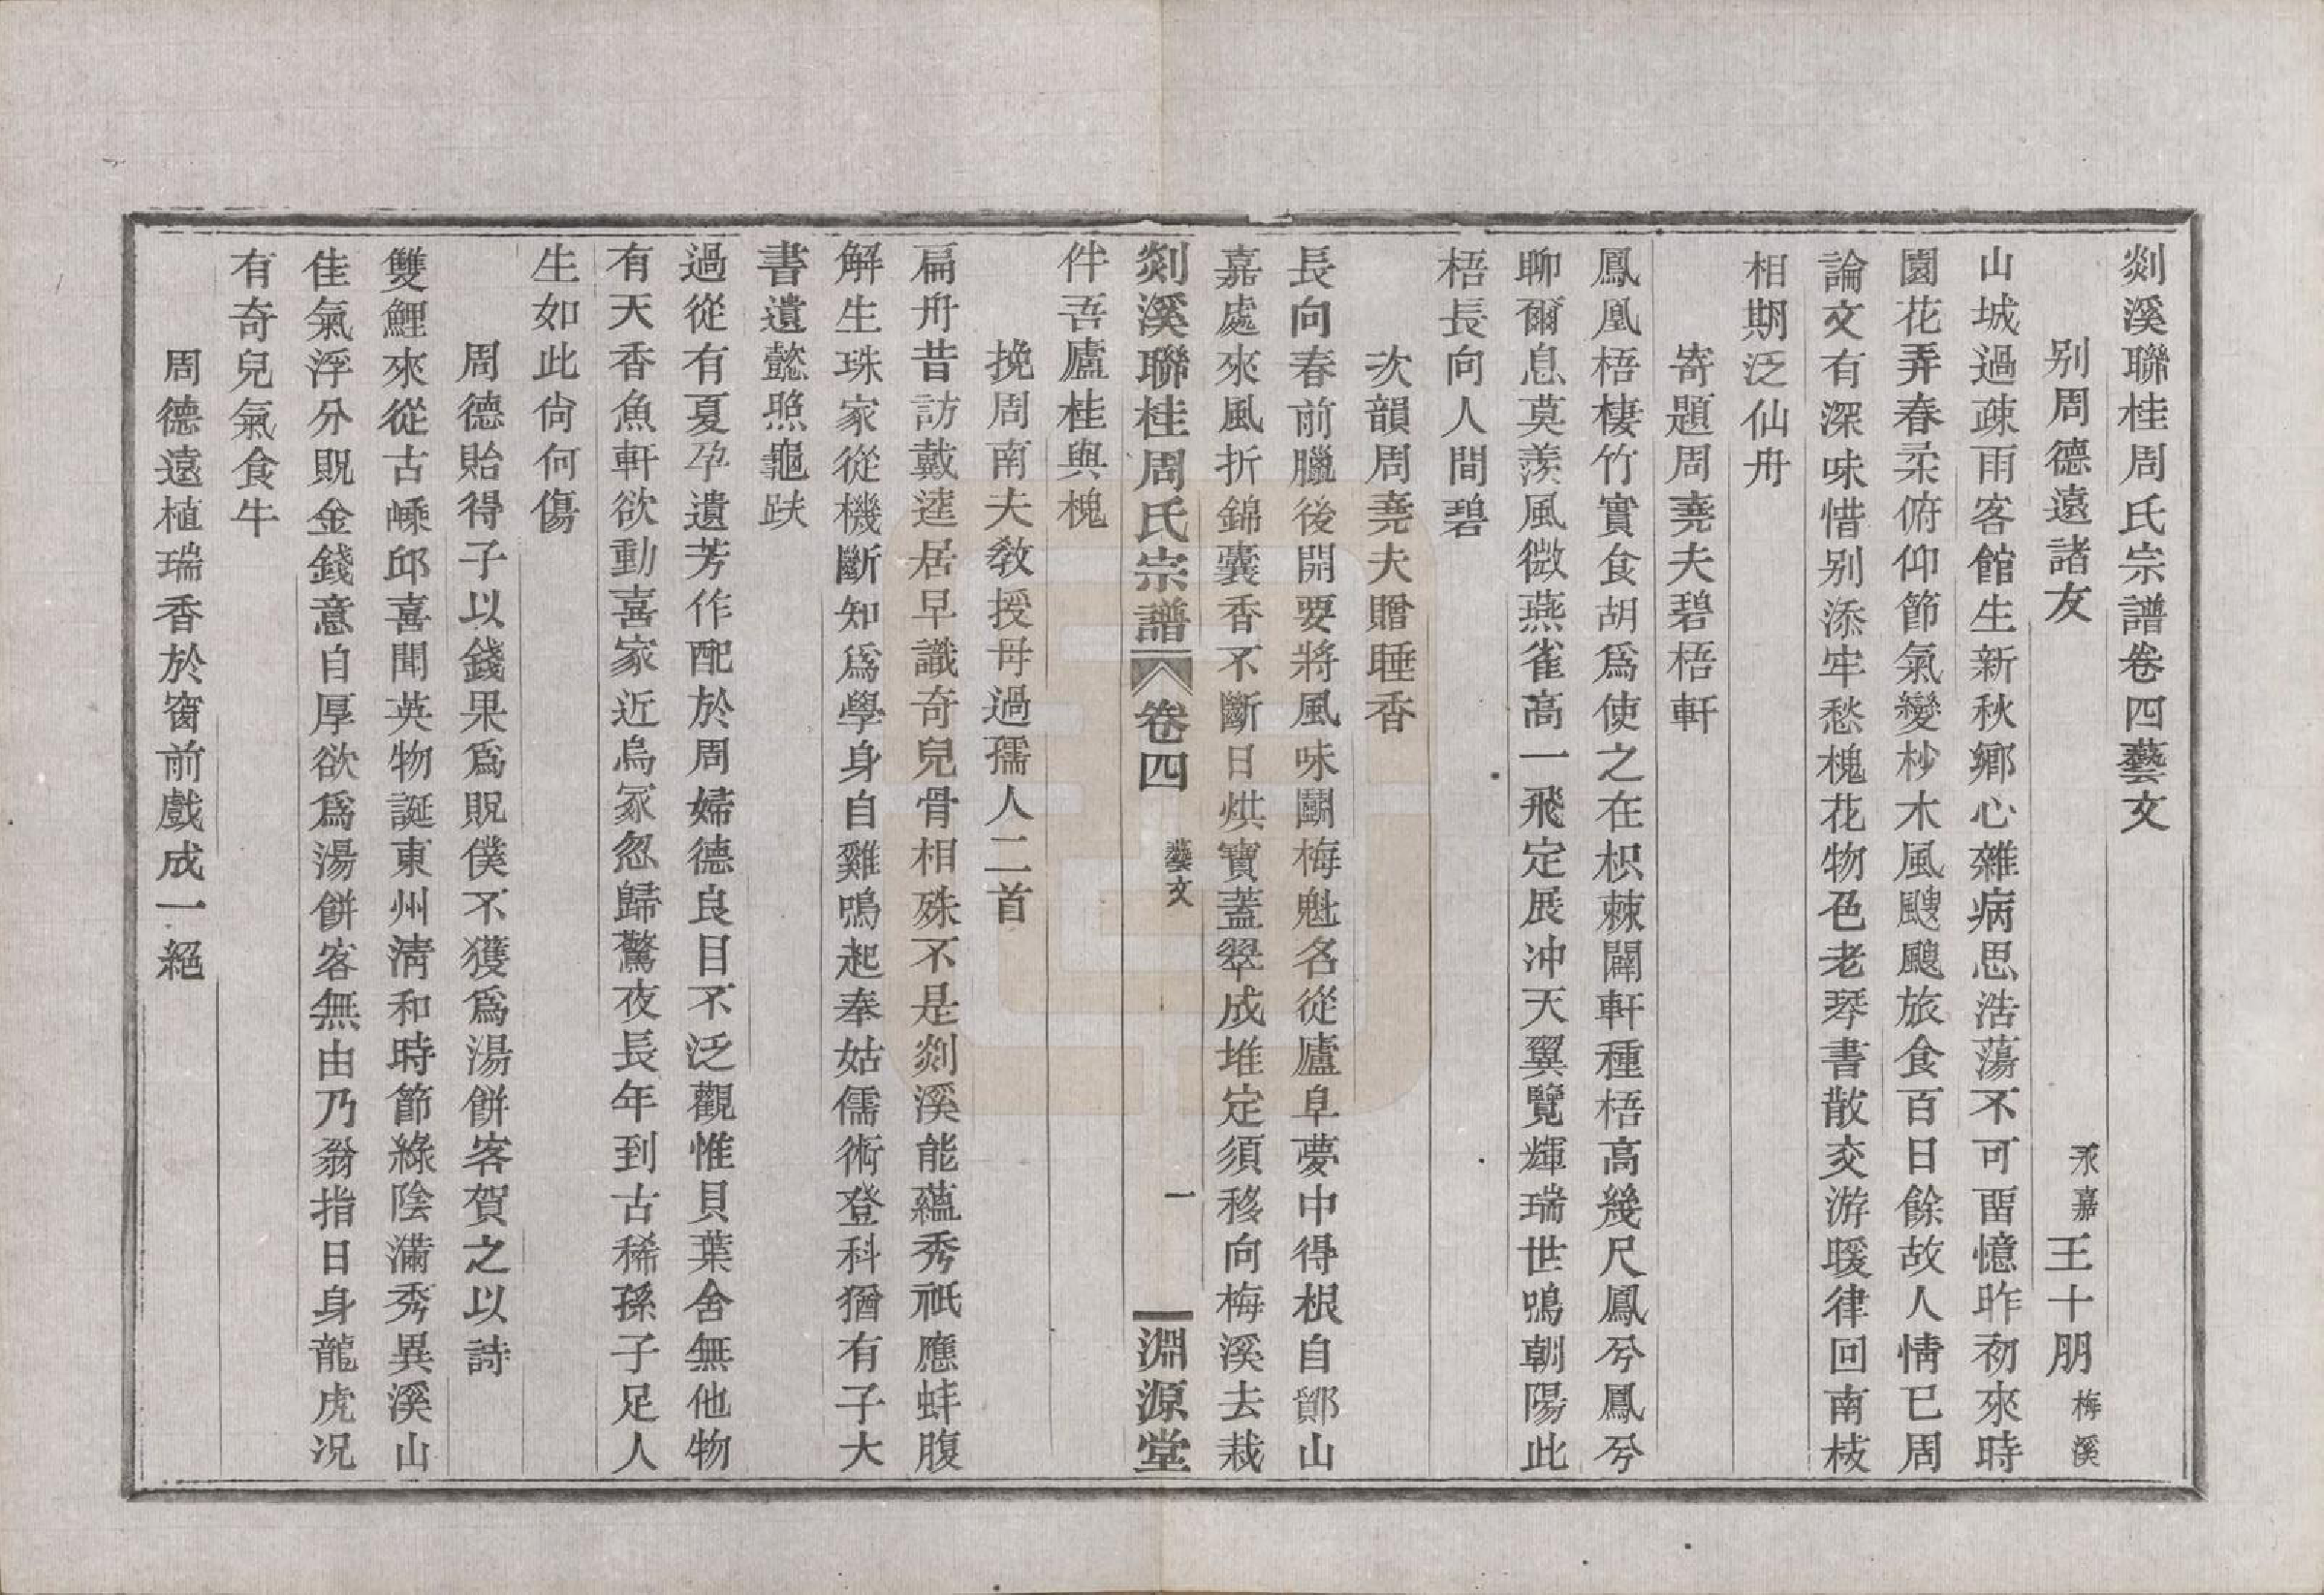 剡溪聯桂周氏宗譜卷四藝文
别周德遠諸友　永嘉王十朋梅溪
山城過疎雨客館生新秋鄉心雜病思浩蕩不可畱憶昨初來時
園花弄春柔俯仰節氣變杪木風颼颼旅食百日餘故人情已周
論文有深味惜别添牢愁槐花物色老琴書散交游暖律回南枝
相期泛仙舟
寄題周堯夫碧梧軒
鳳凰梧棲竹實食胡爲使之在枳棘闢軒種梧高幾尺鳳兮鳳兮
聊爾息莫羡風微燕雀高一飛定展冲天翼覽輝瑞世鳴朝陽此
梧長向人間碧
次韻周堯夫贈睡香
長向春前臘後開要將風味鬭梅魁名從廬阜夢中得根自鄮山
嘉處來風折錦囊香不斷日烘寶蓋翠成堆定須移向梅溪去栽
剡溪聯桂周氏宗譜　卷四　藝文　一　淵源堂
伴吾廬桂與槐
挽周南夫敎授母過孺人二首
扁舟昔訪戴逵居早識奇兒骨相殊不是剡溪能蘊秀祇應蚌腹
解生珠家從機斷知爲學身自雞鳴起奉姑儒術登科猶有子大
書遺懿照龜趺
過從有夏孕遺芳作配於周婦德良目不泛觀惟貝葉舍無他物
有天香魚軒欲動喜家近烏冢忽歸驚夜長年到古稀孫子足人
生如此尙何傷
周德貽得子以錢果爲貺僕不獲爲湯餅客賀之以詩
雙鯉來從古嵊邱喜聞英物誕東州淸和時節綠陰滿秀異溪山
佳氣浮分貺金錢意自厚欲爲湯餅客無由乃翁指日身龍虎况
有奇兒氣食牛
周德遠植瑞香於窗前戲成一絕